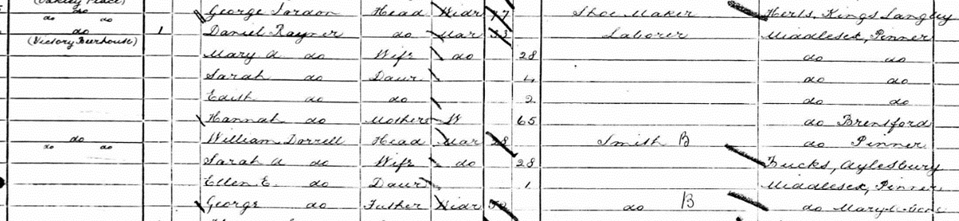 (Oakley Place)
do do George Jordon Head Widr 77 Shoe Maker Herts, Kings Langley
do 1 Daniel Rayner do Mar Laborer Middlesex, Pinner
(Victory Beerhouse) Mary A do Wife do 28 do do
Sarah do Daur 4 do do
Edith do do 2 do do
Hannah do Mother W 65 do Brentford
do do William Dorrell Head Mar 28 Smith B do Pinner
Sarah A do Wife do 28 Bucks, Aylesbury
Ellen E. do Daur 1 Middlesex, Pinner
George do Father Widr do B do